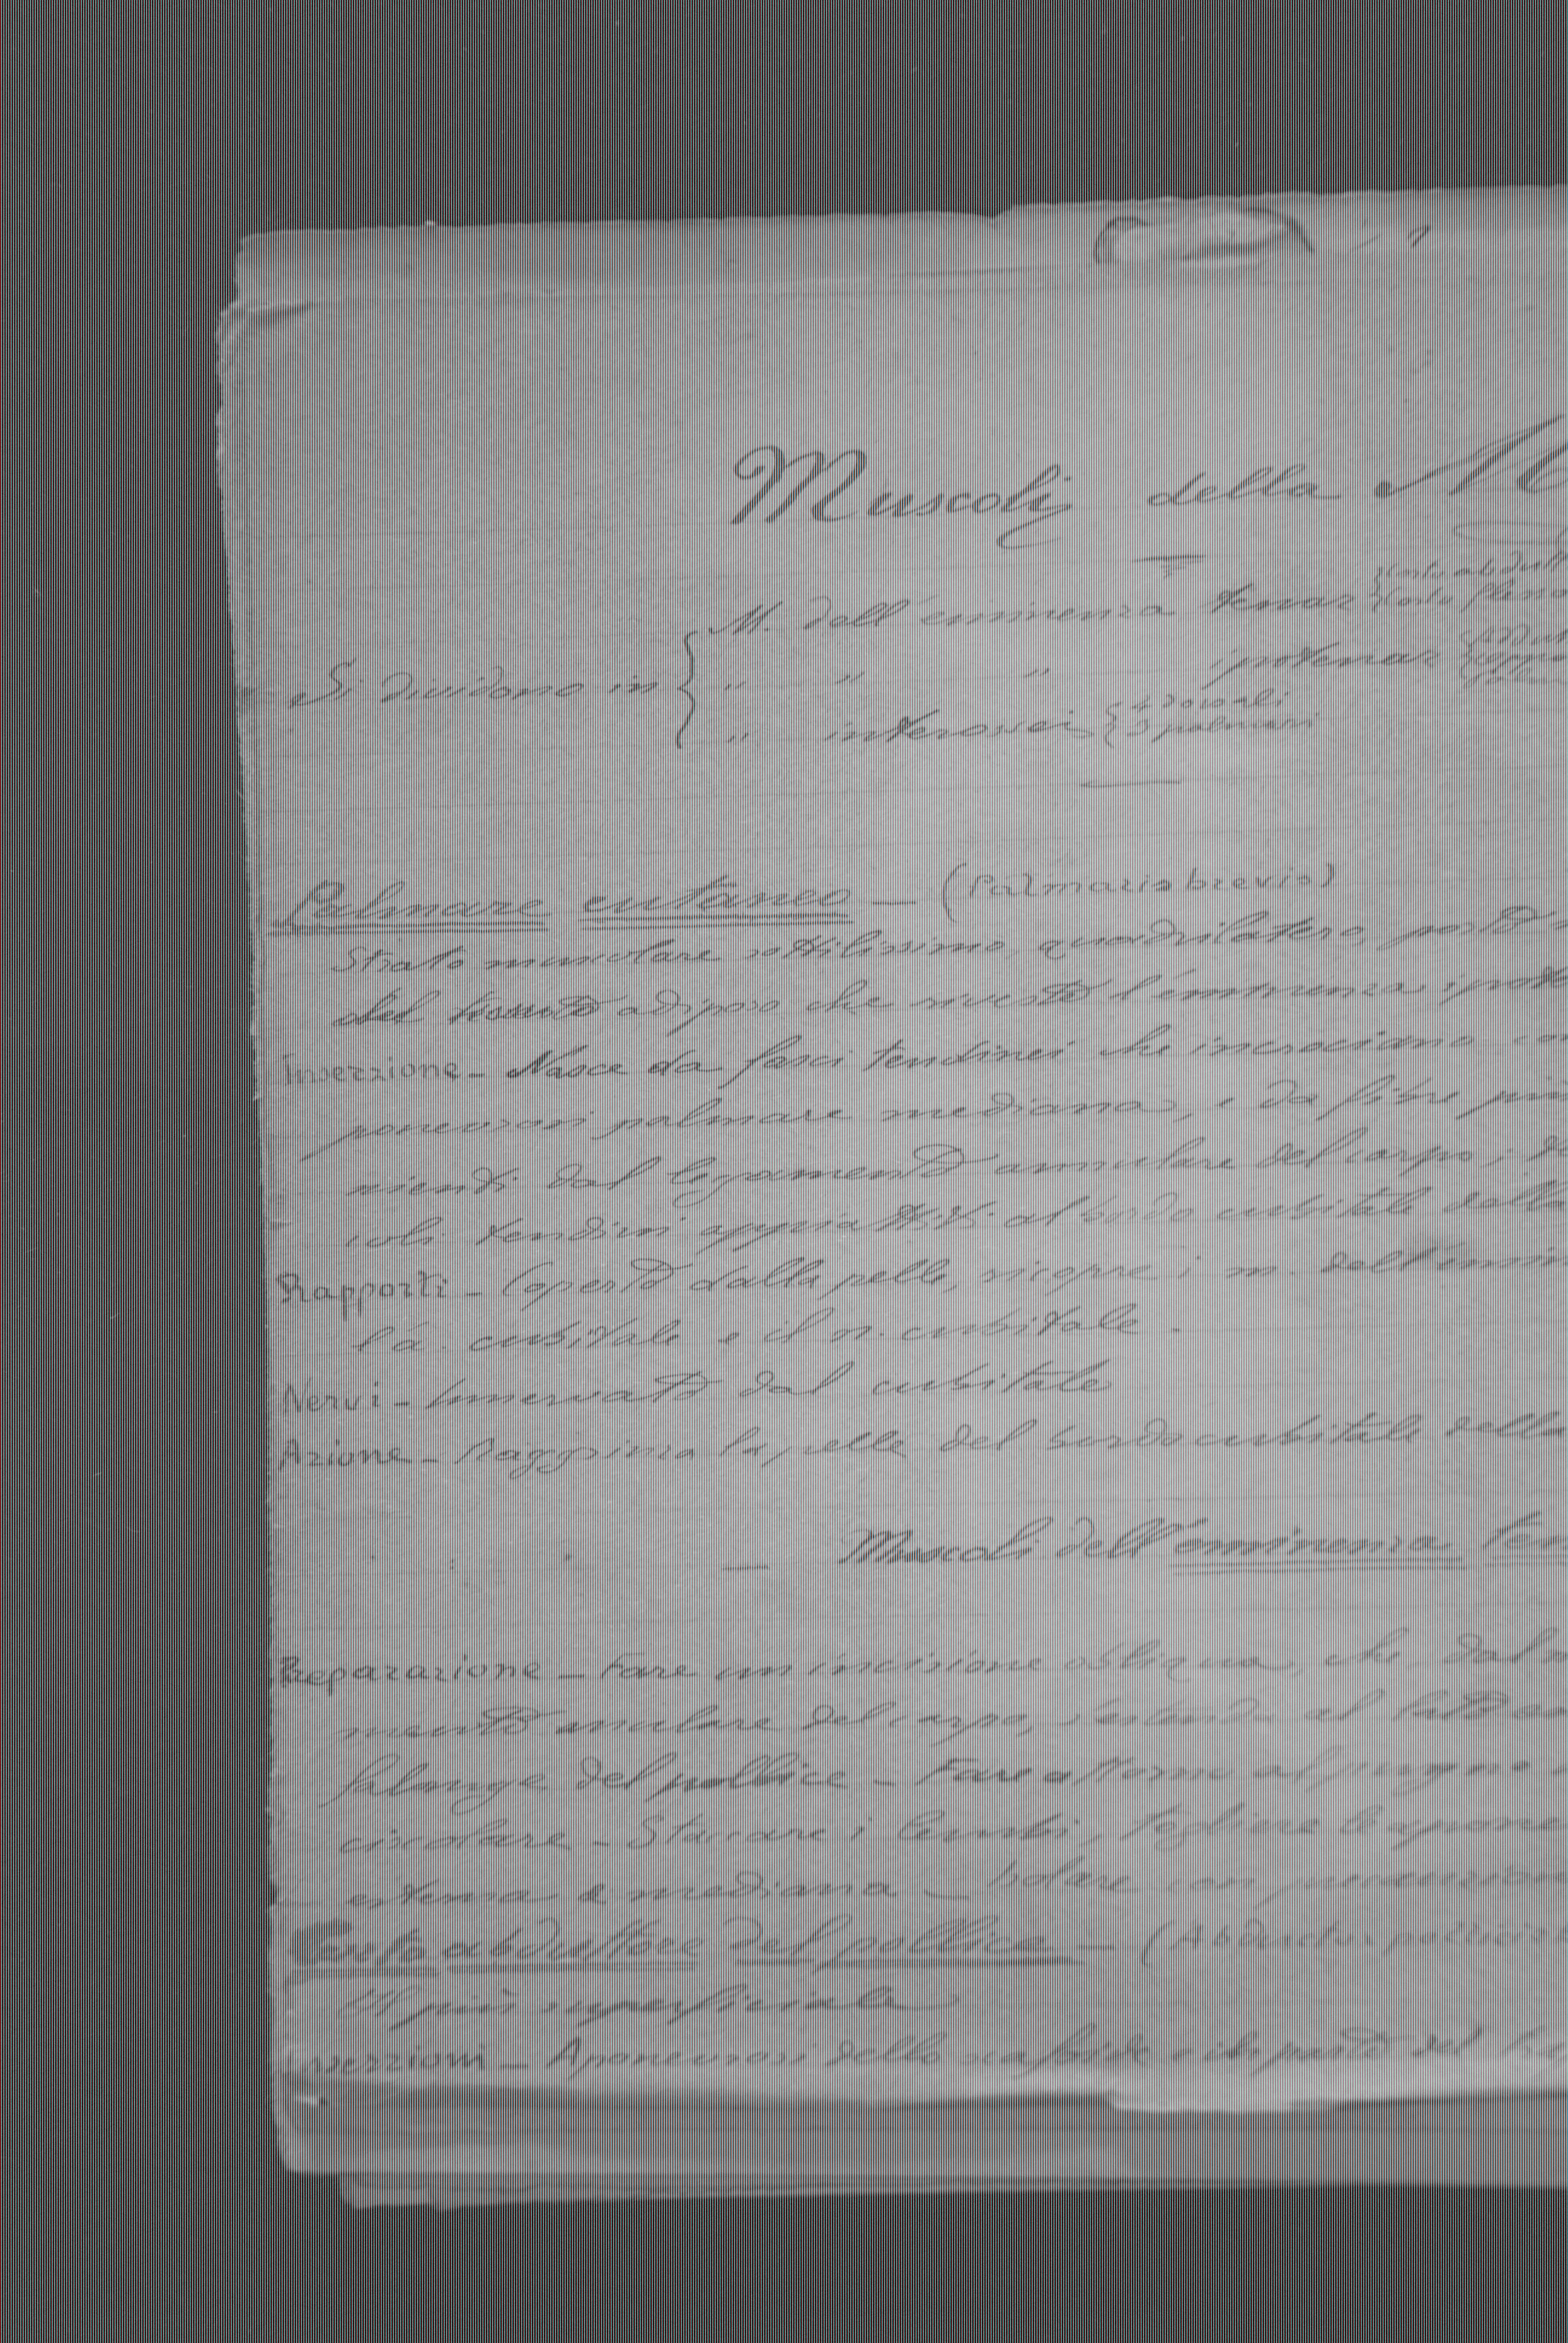 Muscoli della M
M. dell'eminenza tenar { Corto abdutt
Corto fless
Si dividono in { " " " ipotenar {
" interossei { 4 dorsali
3 palmari
Palmare cutaneo — (Palmaris brevis)
Strato muscolare sottilissimo, quadrilatero, posto
del tessuto adiposo che riveste l'eminenza ipote
Inserzione - Nasce da fasci tendinei che incrociano co
ponevrosi palmare mediana, e da fibre
dal legamento annulare del carpo;
coli tendinei al bordo cubitale della
Rapporti - Coperto dalla pelle, ricopre i m. dell'emin
l'a. cubitale e il n. cubitale.
Nervi - Innervato dal cubitale
Azione - Raggrinza la pelle del bordo cubitale della
— Muscoli dell'eminenza ten
Preparazione - Fare un incisione obliqua, che dal
mento anulare del carpo, al lato
falange del pollice - Fare attorno al
circolare - Staccare i lembi, togliere le apone
esterna e mediana - Isolare con
Corto abduttore del pollice - (Abductor pollicis
Il più superficiale
Inserzioni - Aponeurosi dello scafoide e del